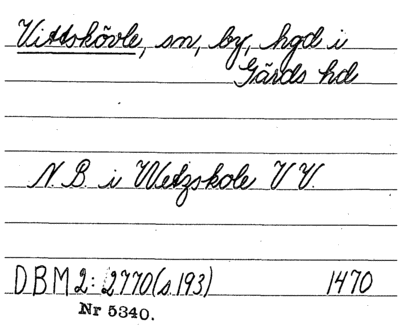 Vittskövle, sn, by, hgd i
Gärds hd
N.B. i Wetzskole V V.
DBM 2: 2770 (s. 193) 1470
Nr 5340.